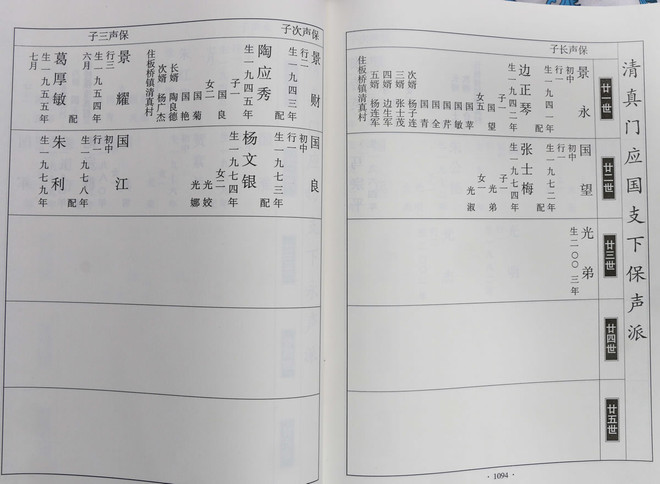 清真门应国支下保声派
廿一世
廿二世
廿三世
廿四世
廿五世
保声长子
景永
初中
行一
生一九四一年
配
边正琴
生一九四二年
子一
国望
女五
国苹
国敏
国芹
国全
国青
次婿 杨子连
三婿 张士茂
四婿 边生军
五婿 杨连军
住板桥镇清真村
国望
初中
行一
生一九七二年
配
张士梅
生一九七四年
子一
光弟
女一
光淑
光弟
生二〇〇三年
·1094·
保声次子
景财
行二
生一九四三年
配
陶应秀
生一九四五年
子一
国良
女二
国菊
国艳
长婿 陶良德
次婿 杨广杰
住板桥镇清真村
国良
初中
行一
生一九七三年
配
杨文银
生一九七四年
女二
光姣
光娜
保声三子
景耀
行三
生一九五四年
六月
配
葛厚敏
生一九五五年
七月
国江
初中
行一
生一九七八年
配
朱利
生一九七九年